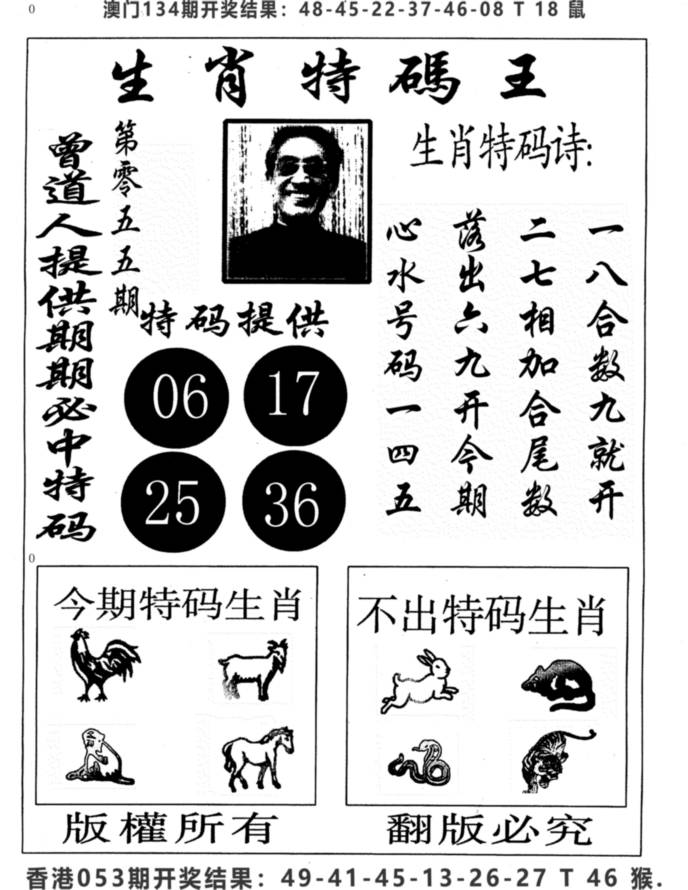 0
澳门134期开奖结果：48-45-22-37-46-08 T 18 鼠
生肖特碼王
曾道人提供期期必中特码
第零五五期
生肖特码诗:
一八合数九就开
二七相加合尾数
落出六九开今期
心水号码一四五
特码提供
06 17
25 36
0
今期特码生肖
不出特码生肖
版權所有
翻版必究
香港053期开奖结果：49-41-45-13-26-27 T 46 猴.